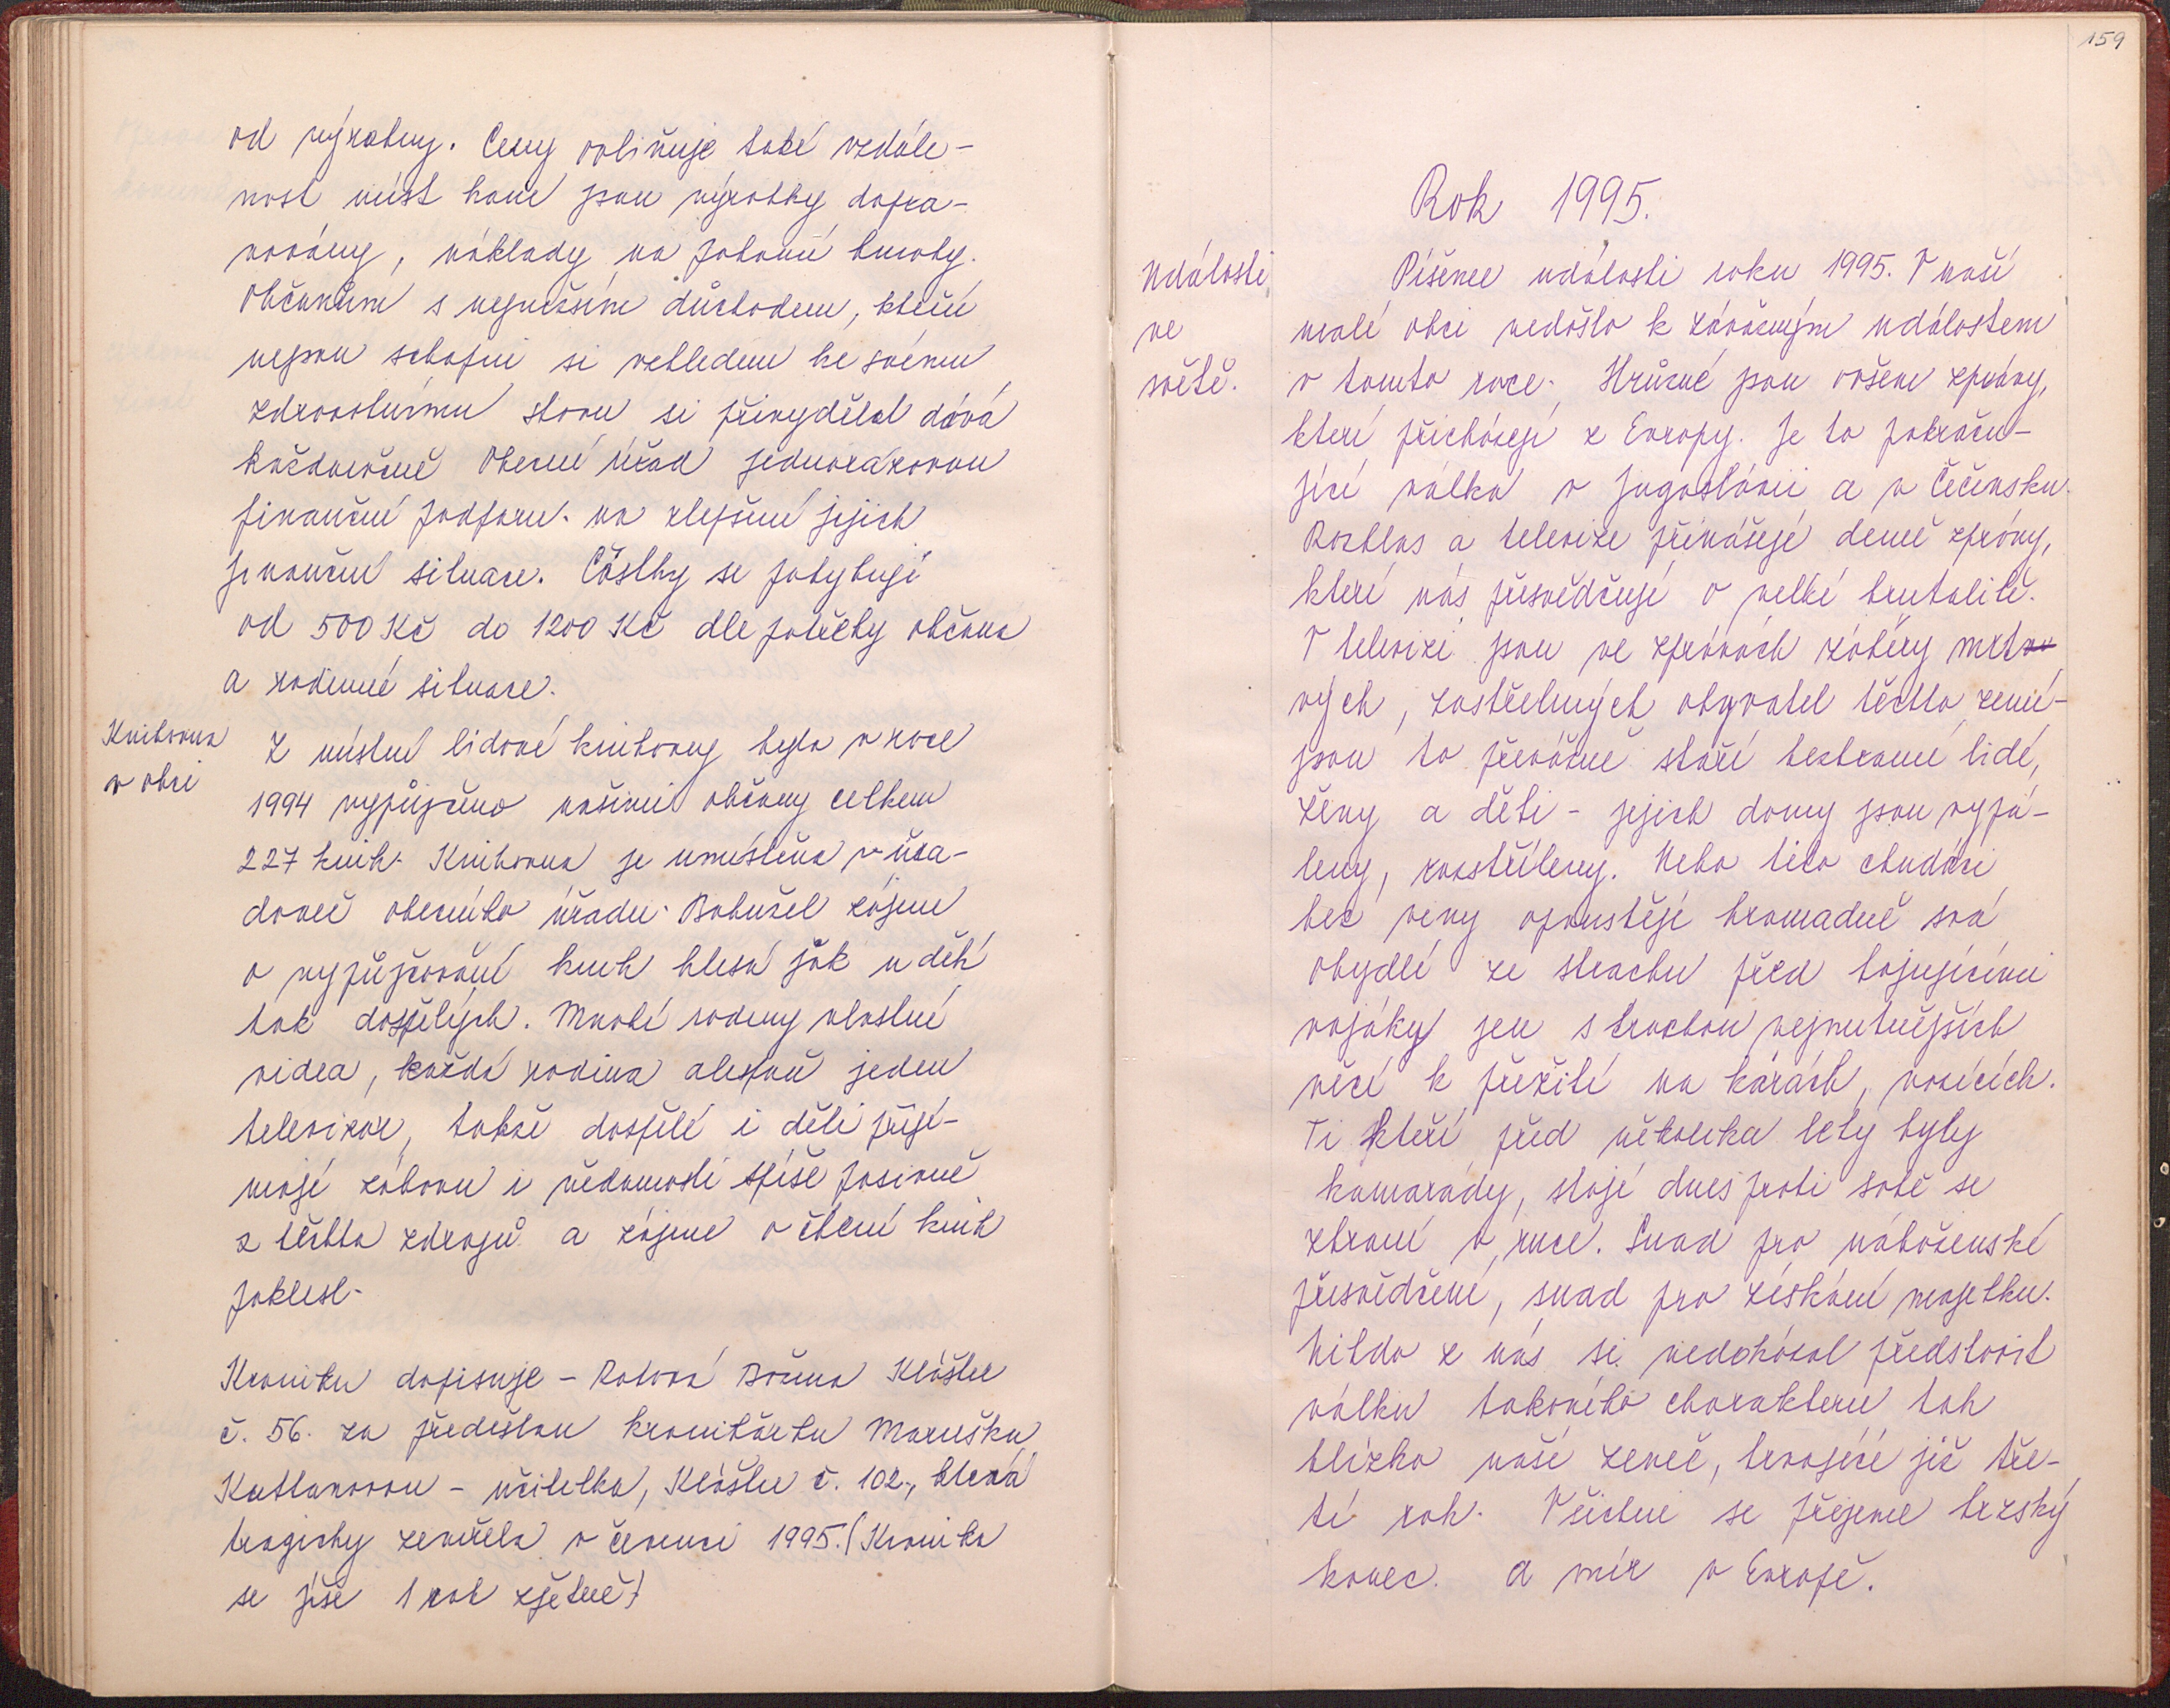 od výrobny. Ceny ovlivňuje také vzdále-
nost míst kam jsou výrobky dopra-
vovány, náklady na pohonné hmoty.
Občanům s nejnižším důchodem, kteří
nejsou schopni si vzhledem ke svému
zdravotnímu stavu si přivydělat dává
každoročně Obecní úřad jednorázovou
finanční podporu na zlepšení jejich
finanční situace. Částky se pohybují
od 500 Kč do 1200 Kč dle potřeby občana
a rodinné situace.
Knihovna
v obci
Z místní lidové knihovny bylo v roce
1994 vypůjčeno našimi občany celkem
227 knih. Knihovna je umístěna v úřa-
dovně obecního úřadu. Bohužel zájem
o vypůjčování knih klesá jak u dětí
tak dospělých. Mnohé rodiny vlastní
videa, každá rodina alespoň jeden
televizor, takže dospělí i děti přijí-
mají zábavu i vědomosti spíše pasivně
z těchto zdrojů a zájem o čtení knih
poklesl.
Kroniku dopisuje – Božena Klášter
č. 56. za předešlou kronikářku Marušku
– učitelka, Klášter č. 102., která
tragicky zemřela v červenci 1995. (Kronika
se píše 1 rok zpětně)
159
Rok 1995.
Události
ve
světě.
Píšeme události roku 1995. V naší
malé obci nedošlo k závažným událostem
v tomto roce. Hrůzné jsou ovšem zprávy,
které přicházejí z Evropy. Je to pokraču-
jící válka v Jugoslávii a v Čečensku.
Rozhlas a televize přinášejí denně zprávy,
které nás přesvědčují o velké brutalitě.
V televizi jsou ve zprávách záběry mrt
vých, zastřelených obyvatel těchto zemí-
jsou to převážně staří bezbranní lidé,
ženy a děti – jejich domy jsou vypá-
leny, rozstříleny. Nebo tito chudáci
bez viny opouštějí hromadně svá
obydlí ze strachu před bojujícími
vojáky jen s trochou nejnutnějších
věcí k přežití na kárách, vozících.
Ti kteří před několika lety byly
kamarády, stojí dnes proti sobě se
zbraní v ruce. Snad pro náboženské
přesvědčení, snad pro získání majetku.
Nikdo z nás si nedokázal představit
válku takového charakteru tak
blízko naší země, trvající již tře-
tí rok. Všichni se přejeme brzský
konec a mír v Evropě.